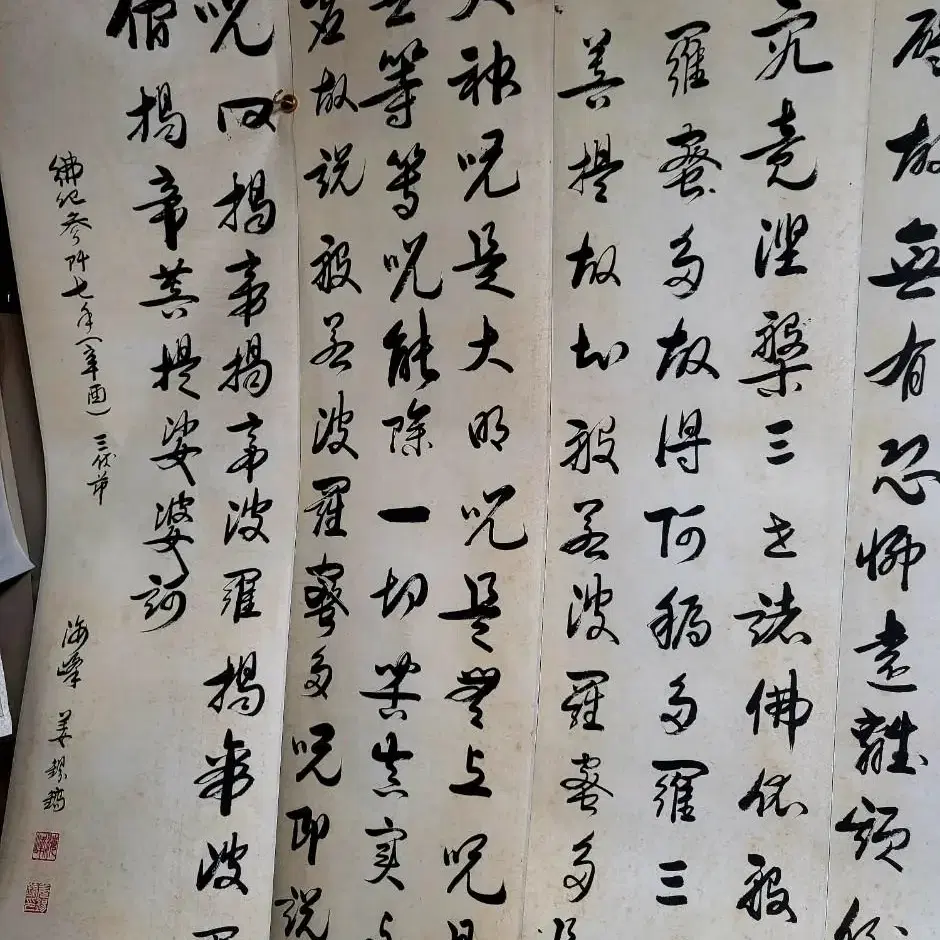 礙故無有恐怖遠離顛倒
究竟涅槃三世諸佛依般
羅蜜多故得阿耨多羅三
菩提故知般若波羅蜜多是
大神呪是大明呪是無上呪是
無等等呪能除一切苦真實不
虛故說般若波羅蜜多呪即說
呪曰揭帝揭帝波羅揭帝波羅
僧揭帝菩提娑婆訶
佛紀參阡七年(辛酉)三伏節
海峰 姜